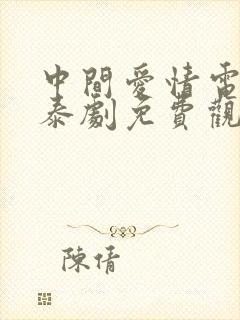 中間愛情電
泰劇免費觀
陳倩